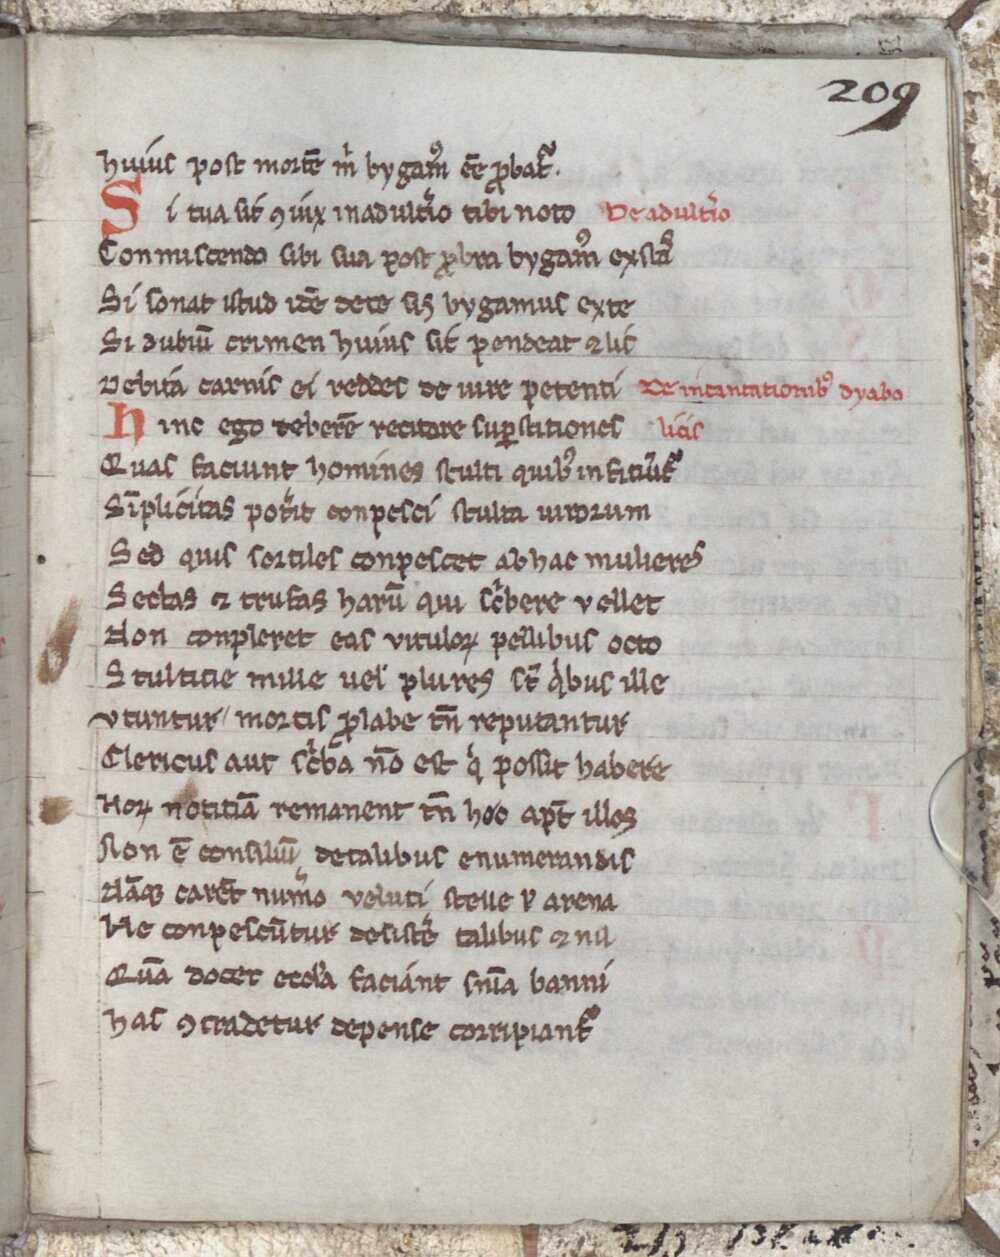 209
huius post mortē m̄ bygamꝰ eē ꝓbat᷑.
Si tua sit ꝯiux in adult̾io tibi noto De adult̾io
Conmiscendo sibi sua post ꝓbra bygamꝰ exstas
Si sonat istud idē de te sis bygamus ex te
Si dubiū crimen huius sit pendeat ⁊ lis
Debita carnis ei reddes de iure petenti De incantationibꝰ dyabo
Hinc ego deberē recitare suꝑstitiones licis
Quas faciunt homines stulti quibꝰ infituunt᷑
Sīplicitas pot̾it conpesci stulta uirorum
Sed quis sortiles conpescet ab hac mulieres
Sectas ⁊ trufas harū qui sc̾bere vellet
Non conpleret eas vituloꝝ pellibus octo
Stulticie mille uel plures st̄ qͥbus ille
vtuntur mortis ꝓ labe tn̄ reputantur
Clericus aut sc̾ba nō est qͥ possit habere
Hoꝝ notitiā remanent tn̄ hoc apᷣt illos
Non ē consiliū de talibus enumerandis
Nāqꝫ caret num̾o veluti stelle ul̓ arena
Ne conpescūtur desist̾e talibus ⁊ nil
Quā docet eccl̓a faciant snīa banni
has ꝯtradetur depense corripiant᷑